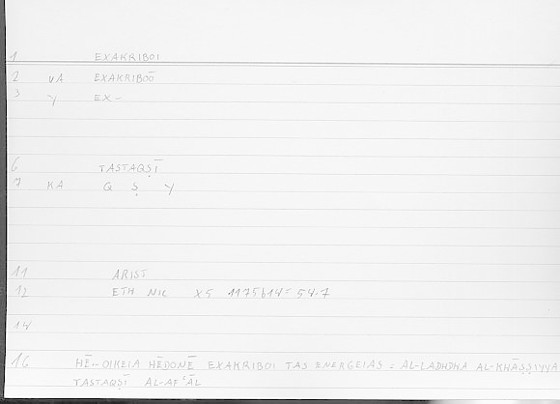 1 EXAKRIBOI
2 VA EXAKRIBOŌ
3 Y EX-
6 TASTAQṢĪ
7 KA Q Ṣ Y
11 ARIST
12 ETH NIC X5 1175b14 = 54.7
14
16 HĒ-OIKEIA HĒDONĒ EXAKRIBOI TAS ENERGEIAS = AL-LADHDHA AL-KHĀṢṢIYYA
TASTAQṢĪ AL-AFʿĀL